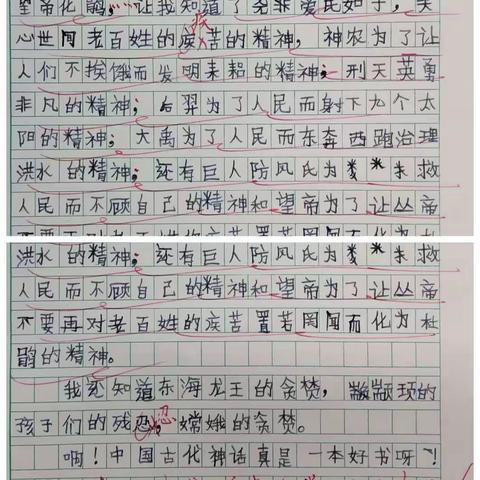 望帝化鹃……让我知道了尧非常爱民如子，关
疾
心世间老百姓的疾苦的精神，神农为了让
人们不挨饿而发明耒耜的精神；刑天英勇
非凡的精神；后羿为了人民而射下九个太
阳的精神；大禹为了人民而东奔西跑治理
洪水的精神；还有巨人防风氏为了 救
人民而不顾自己的精神和望帝为了让丛帝
洪水的精神；还有巨人防风氏为了 救
人民而不顾自己的精神和望帝为了让丛帝
不要再对老百姓的疾苦置若罔闻而化为杜
鹃的精神。
我还知道东海龙王的贪婪，颛顼的
孩子们的残忍，嫦娥的贪婪。
忍
啊！中国古代神话真是一本好书呀！